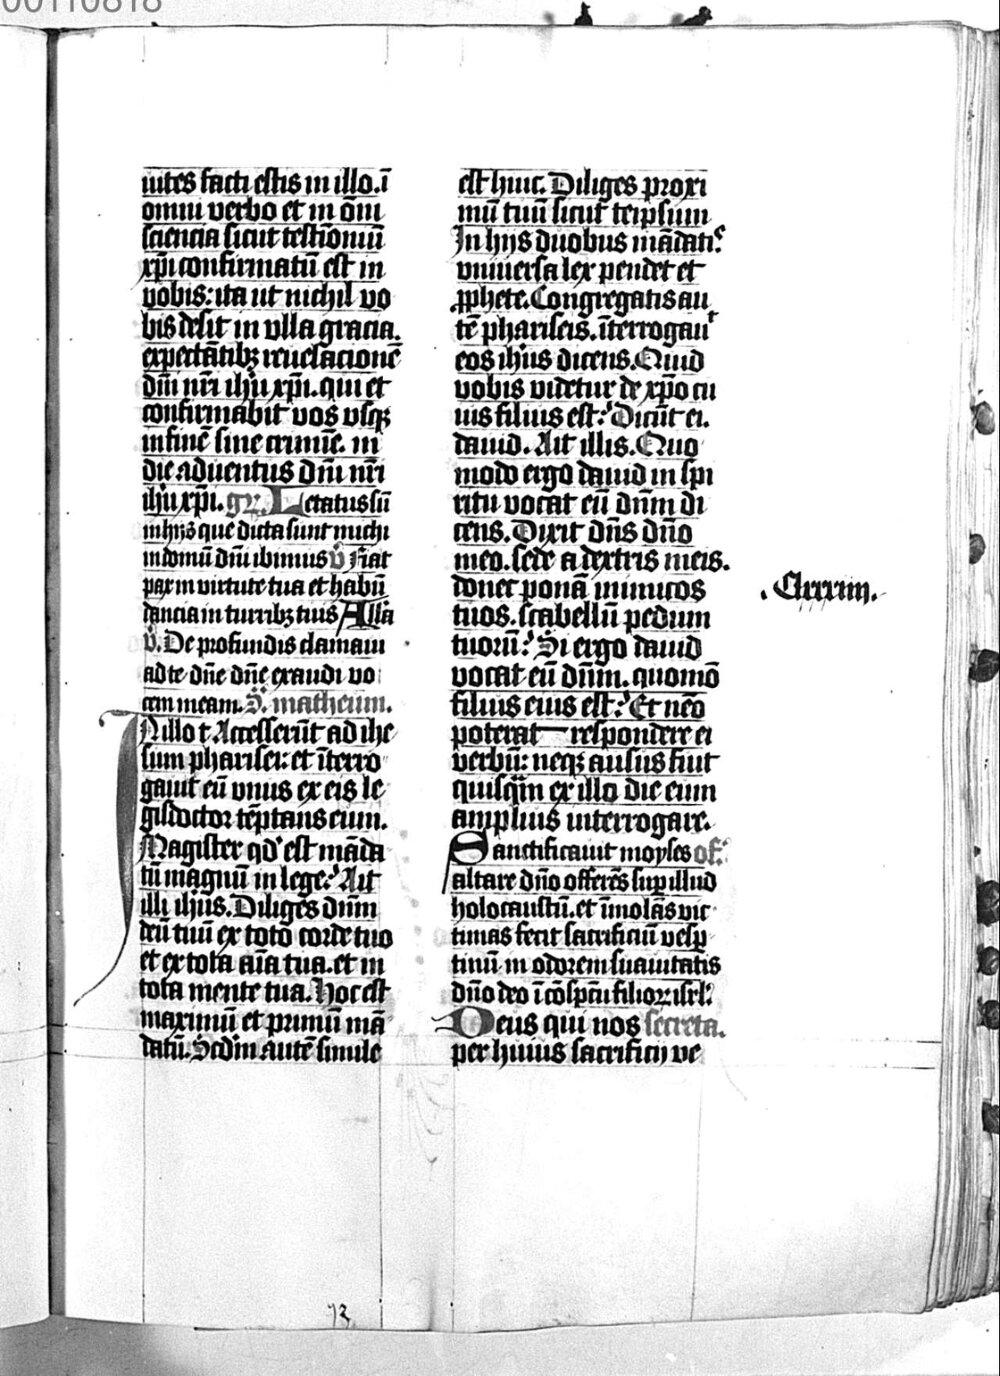 00110818
uites facti estis in illo. ī
omni verbo et in om̄i
sciencia sicut testimoniū
xp̄i confirmatū est in
vobis: ita ut nichil vo
bis desit in vlla gracia.
expectātibꝫ reuelacionē
dn̄i nr̄i ihū xp̄i. qui et
confirmabit vos vsqꝫ
in finē sine crimīe. in
die aduentus dn̄i nr̄i
ihū xp̄i. gr̄. Letatus sū
in hijs que dicta sunt michi
in domū dn̄i ibimus v̄ Fiat
pax in virtute tua et habū
dancia in turribꝫ tuis Allā
v̄. De profundis clamaui
ad te dn̄e dn̄e exaudi vo
cem meam. S. matheum.
In illo t̄ Accesserūt ad ihe
sum pharisei: et īterro
gauit eū vnus ex eis le
gisdoctor tēptans eum.
Magister qd̄ est māda
tū magnū in lege? Ait
illi ihūs. Diliges dn̄m
deū tuū ex toto corde tuo
et ex tota aīa tua. et in
tota mente tua. Hoc est
maximū et primū mā
datū. Scdm̄ autē simile
est huic. Diliges proxi
mū tuū sicut teipsum
In hijs duobus mādatis
vniuersa lex pendet et
ꝓphete. Congregatis au
tē phariseis. īterrogauit
eos ihūs dicens. Quid
vobis videtur de xp̄o cu
ius filius est? Dicūt ei.
dauid. Ait illis. Quo
modo ergo dauid in sp̄i
ritu vocat eū dn̄m di
cens. Dixit dn̄s dn̄o
meo. sede a dextris meis.
donec ponā inimicos
tuos. scabellū pedum
tuorū? Si ergo dauid
vocat eū dn̄m. quomō
filius eius est? Et nēo
poterat respondere ei
verbū: neqꝫ ausus fuit
quisq̄m ex illo die eum
amplius interrogare.
Sanctificauit moyses of.
altare dn̄o offerēs suꝑ illud
holocaustū. et īmolās vic
timas fecit sacrificiū vesꝑ
tinū in odorem suauitatis
dn̄o deo ī cōspc̄u filioꝝ isrl̄.
Deus qui nos secreta.
per huius sacrificij ve
72